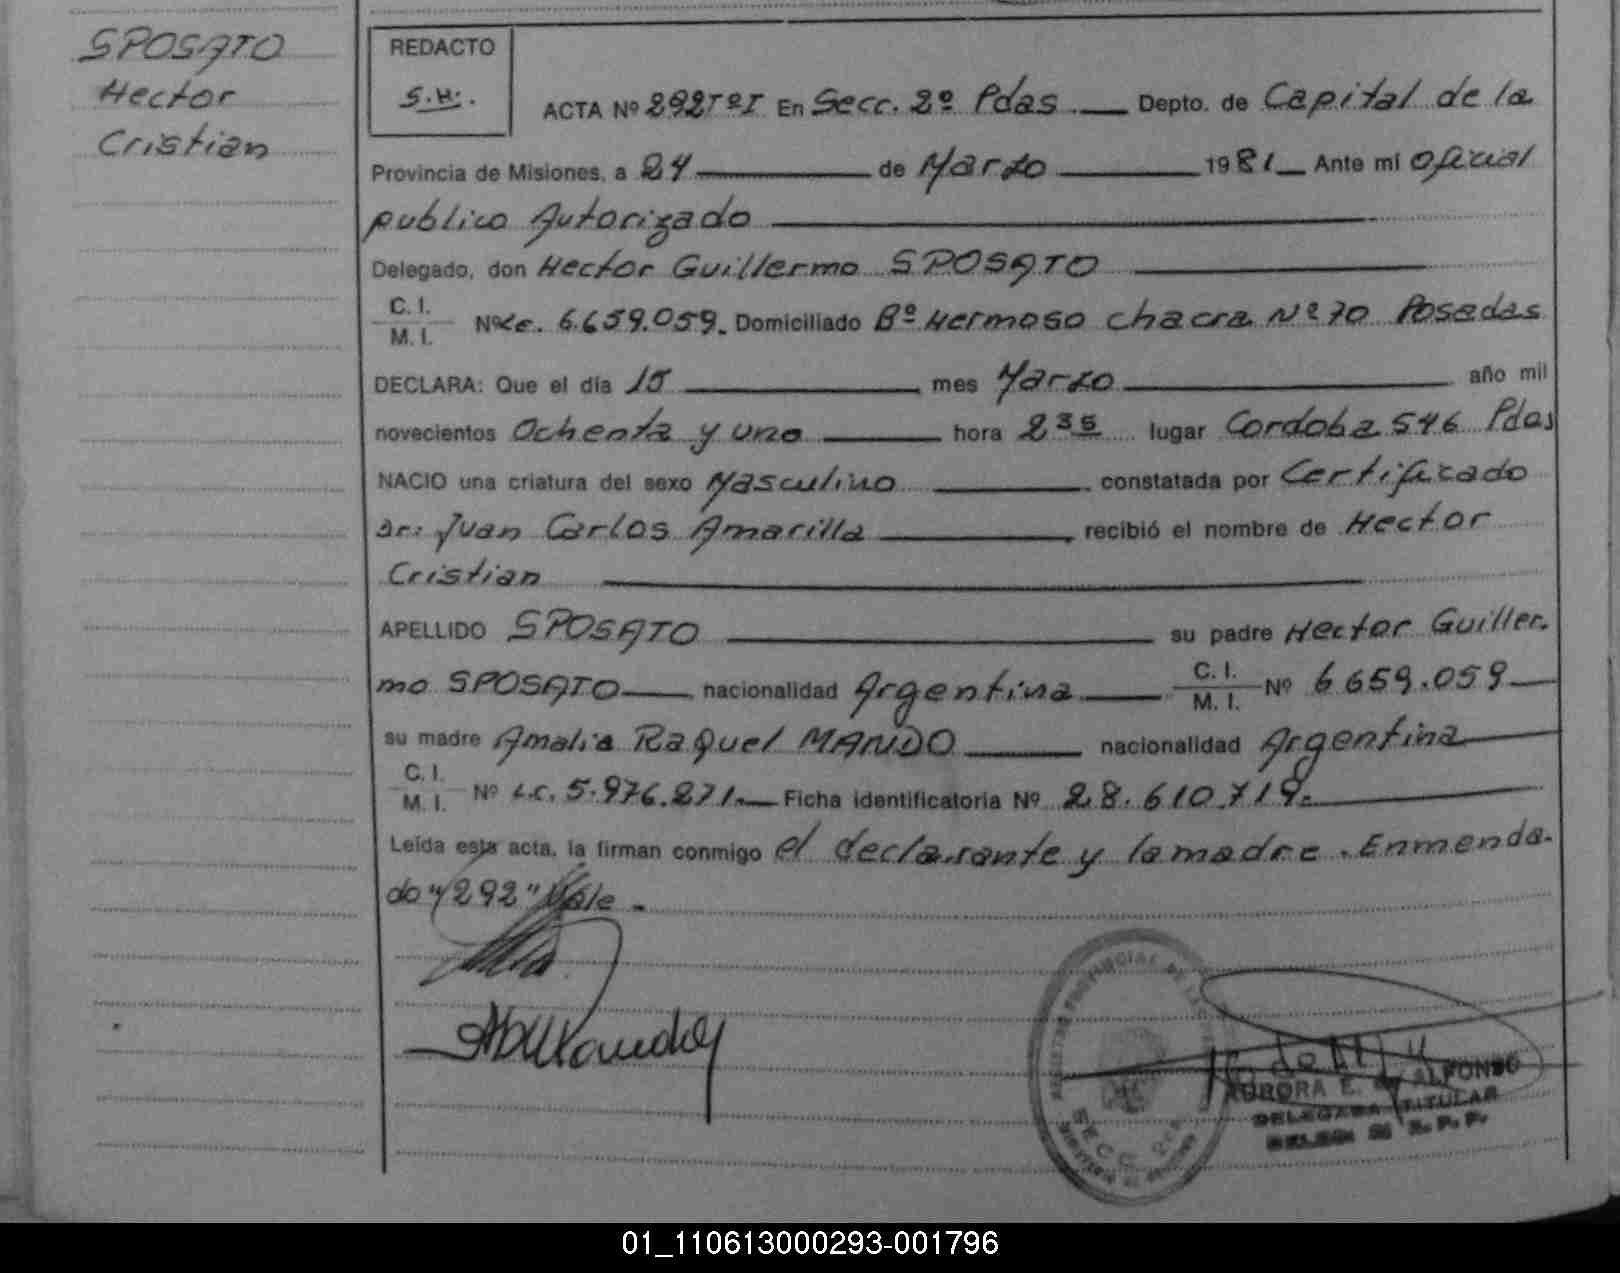 SPOSATO
Hector
Cristian
REDACTO
S.H.
ACTA Nº 292TºI En Secc. 2º Pdas. Depto. de Capital de la
Provincia de Misiones, a 24 de Marzo 1981 Ante mí Oficial
publico Autorizado
Delegado, don Hector Guillermo SPOSATO
C. I.
M. I. Nº Le. 6.659.059. Domiciliado Bº Hermoso chacra Nº 70 Posadas
DECLARA: Que el día 15 mes Marzo año mil
novecientos Ochenta y uno hora 2 35 lugar Cordoba 546 Pdas
NACIO una criatura del sexo Masculino constatada por Certificado
Dr: Juan Carlos Amarilla recibió el nombre de Hector
Cristian
APELLIDO SPOSATO su padre Hector Guiller.
mo SPOSATO nacionalidad Argentina C. I. M. I. Nº 6.659.059
su madre Amalia Raquel MANDO nacionalidad Argentina
C. I.
M. I. Nº L.C. 5.976.271. Ficha identificatoria Nº 28.610.719.
Leída esta acta, la firman conmigo el declarante y la madre. Enmenda-
do "292" Vale.
REGISTRO PROVINCIAL DE LAS
SECC. 2da
AURORA E. ALFONSO
DELEGADA TITULAR
01_110613000293-001796